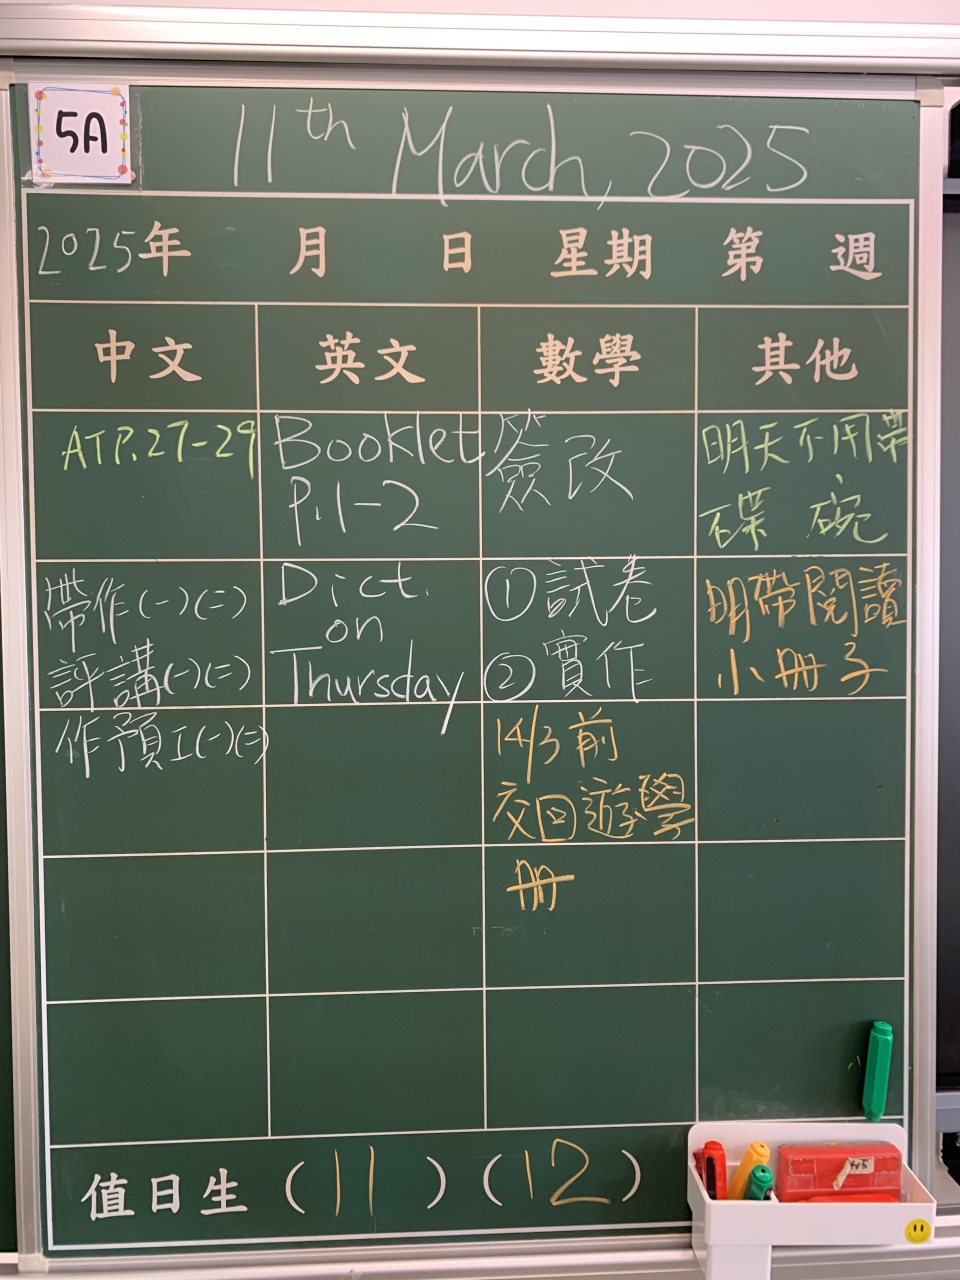 5A
11th March, 2025
2025年 月 日 星期 第 週
中文 英文 數學 其他
ATP.27-29
Booklet
P.1-2
簽改
明天不用帶
碟、碗
帶作(一)(二)
評講(一)(二)
Dict.
on
Thursday
①試卷
②實作
明帶閱讀
小冊子
作預工(一)(二)
14/3前
交回遊學
冊
值日生 (11) (12)